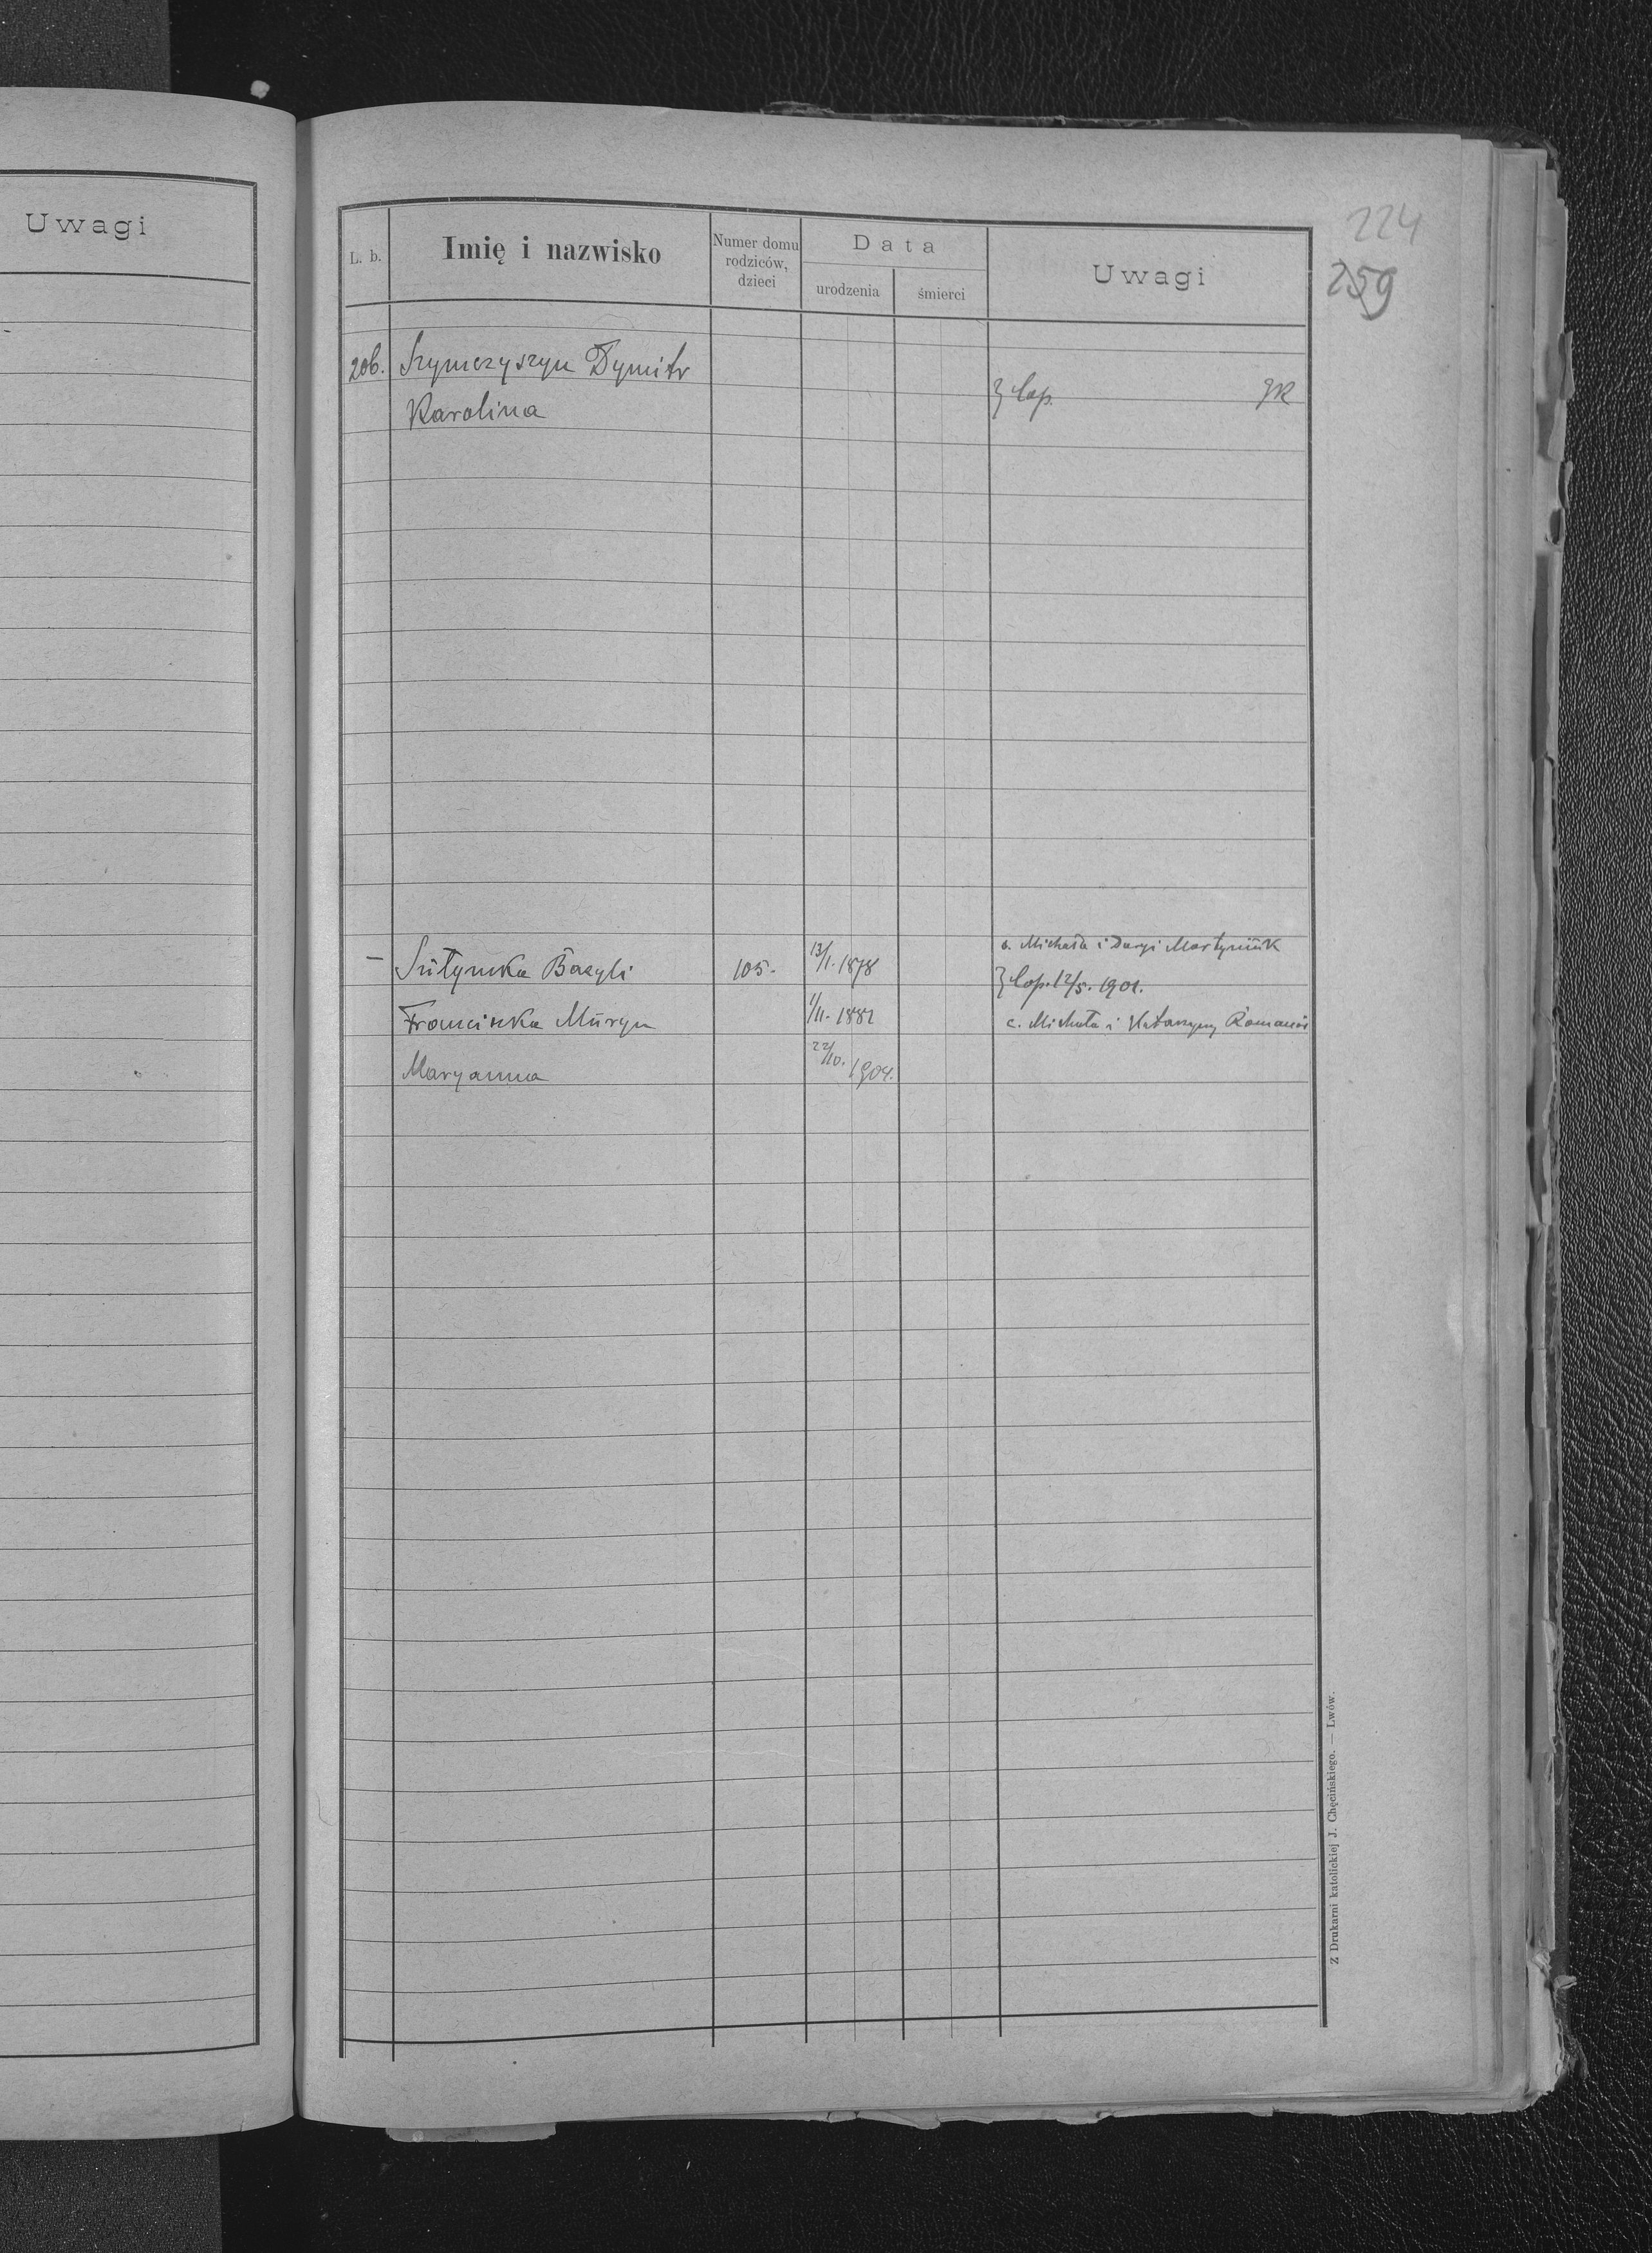 Uwagi
224
259
L. b.
Imię i nazwisko
Numer domu
rodziców,
dzieci
Data
urodzenia
śmierci
Uwagi
206. Szymczyszyn Dymitr
Karolina
} Cop. gR
s. Michała i Daryi Martyniuk
— Bazyli 105. 13/1. 1878
} Cop. 12/5. 1901.
Franciszka Muryn 1/11. 1882 c. Michała i Katarzyny
Maryanna 22/10. 1904.
Z Drukarni katolickiej J. Chęcińskiego. — Lwów.